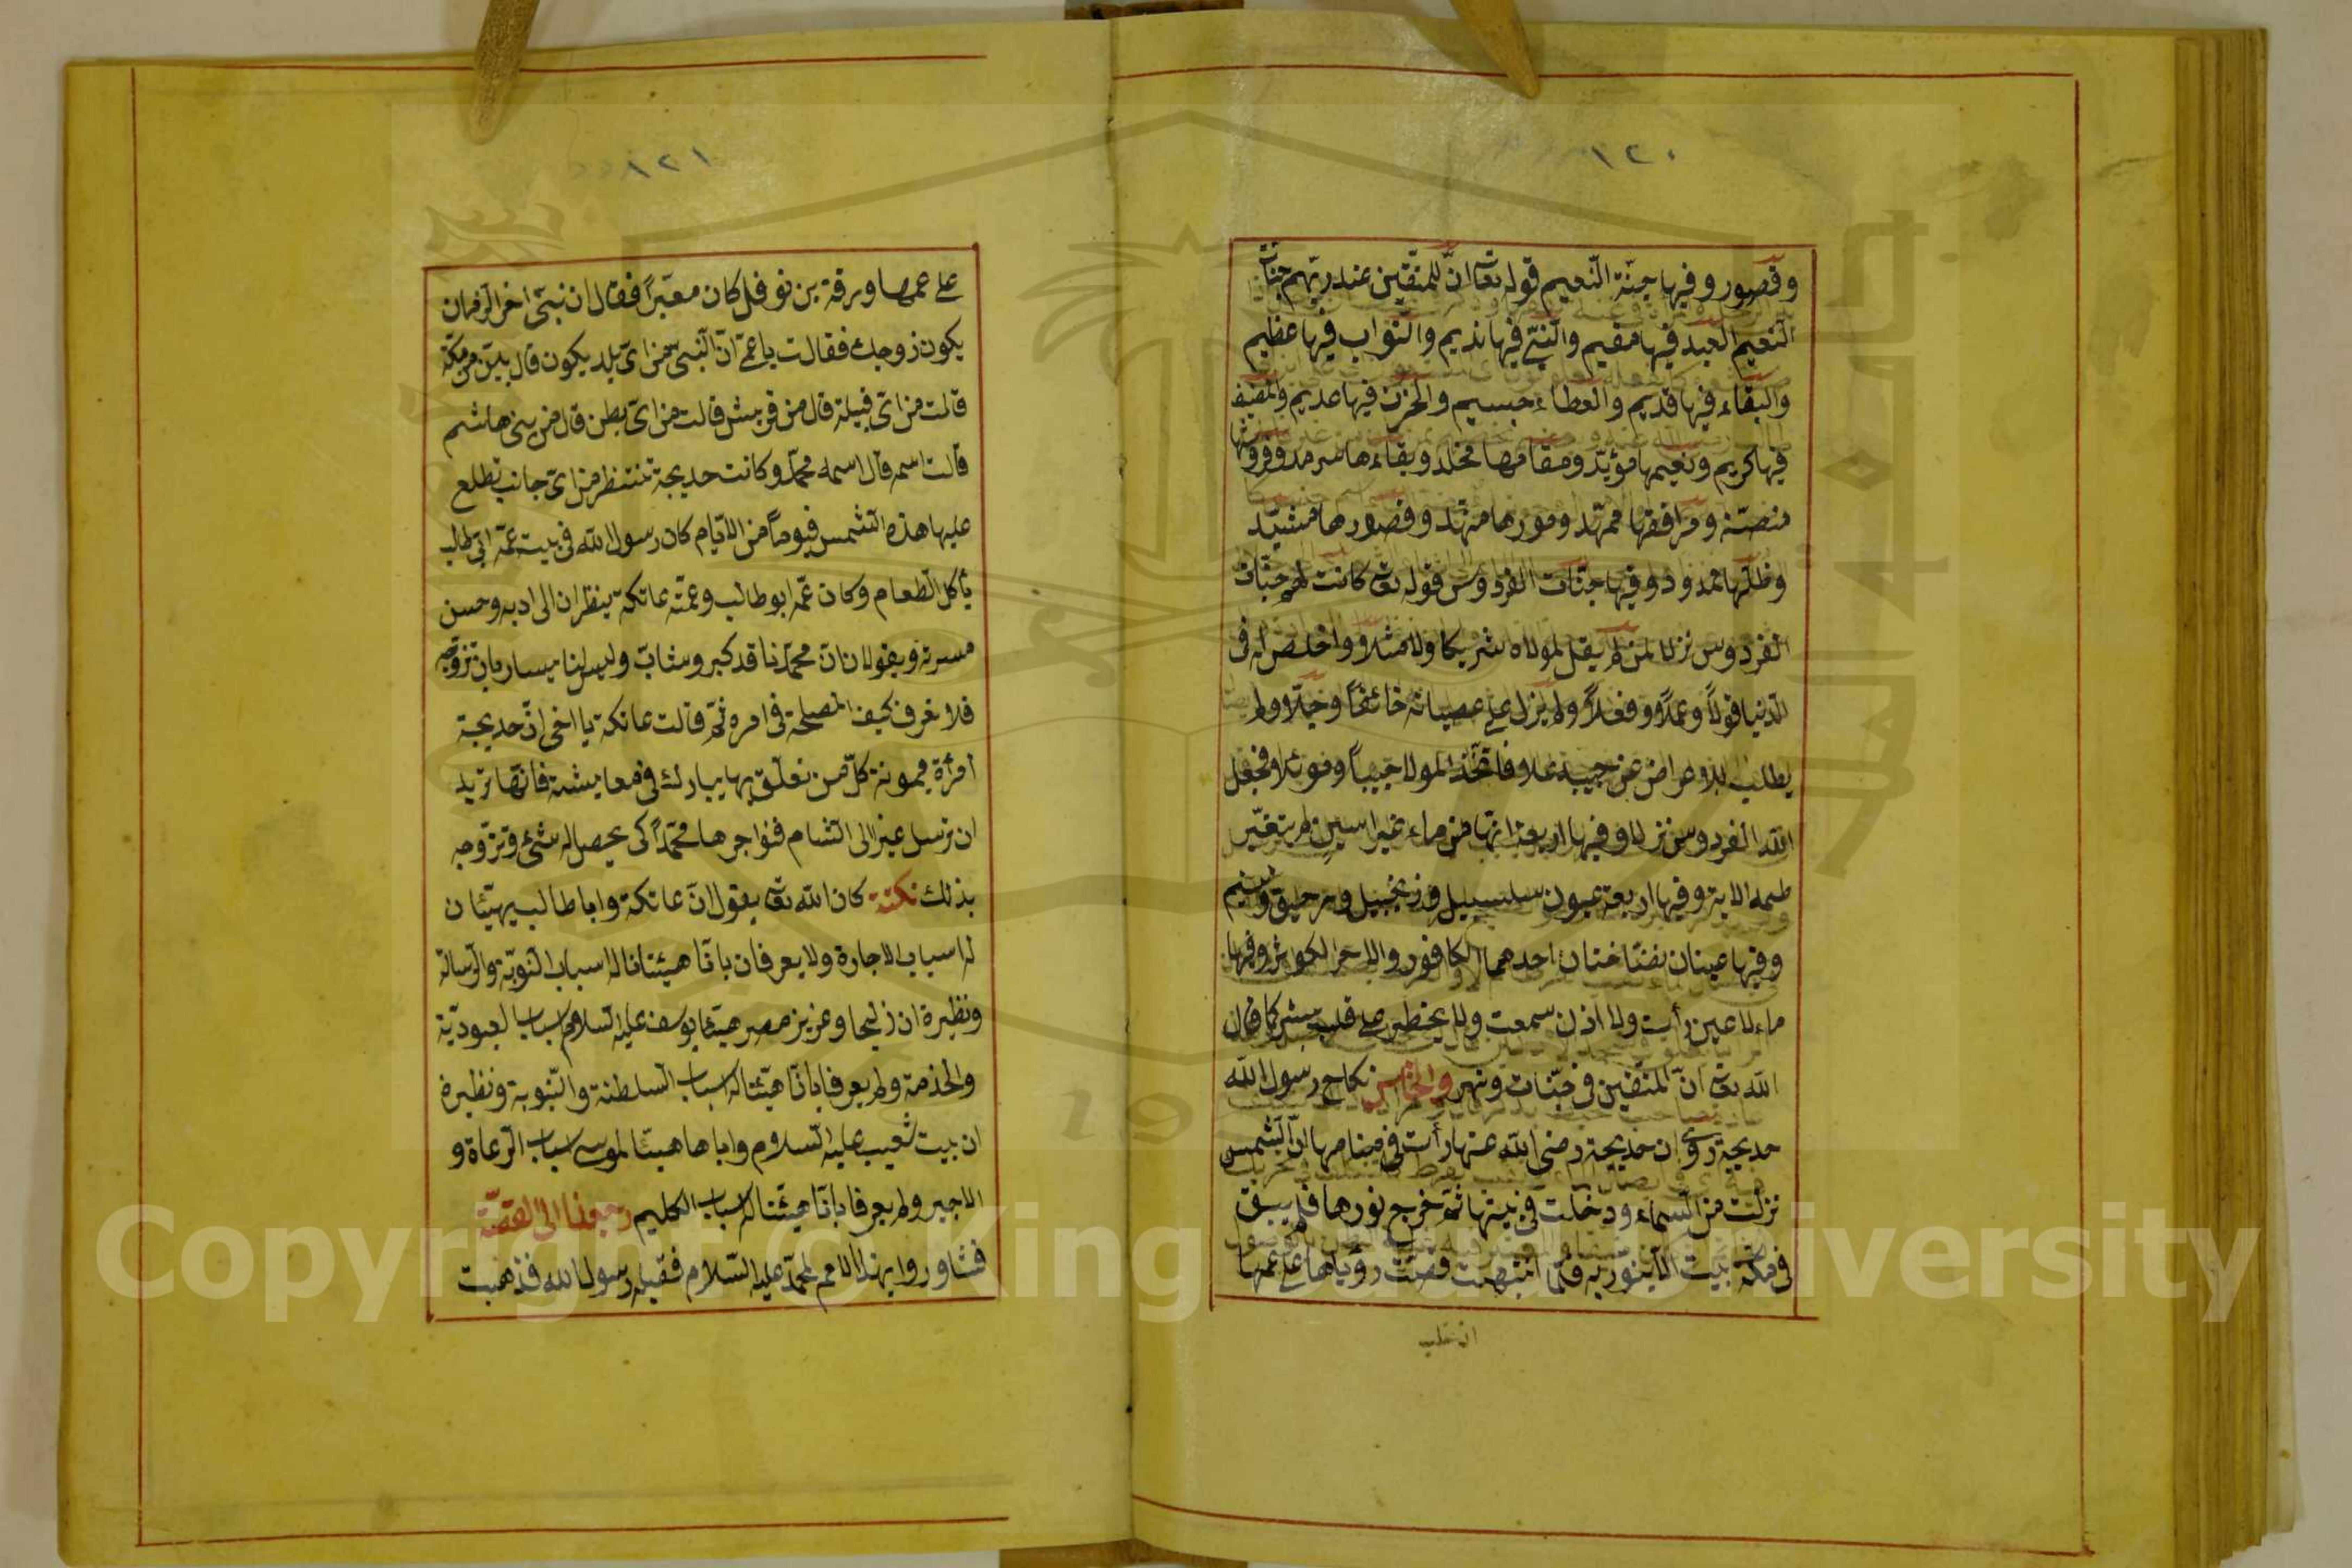 ١٢٠
وقصور وفيها جنّة النّعيم قوله تعا انّ للمتّقين عند ربّهم جنات
النعيم العبد فيها مقيم والنبّي فيها نديم والثواب فيها عظيم
والبقاء فيها قديم والعطاء جسيم والحزن فيها عديم والمضيف
فيها كريم ونعيمها مؤبّد ومقامها مخلد وبقاءها سرمد وفروشها
منصّة ومرافقها ممهّد وقصورها مشيّد
وظلّها ممدود وفيها جنّات الفردوس قوله تعا كانت لهم جنّات
الفردوس نزلا لمن لم يقل لمولاه شريكا ولا مثلا واخلص له فى
الدّنيا قولاً وعملاً وفعلاً ولم يزل على عصيانه خائفاً وخجلا ولم
يطلب فاتّخذ المولا حبيباً فجعل
الله الفردوس نزلا وفيها اربعة انهار من ماء غير اسن لم يتغيّر
طعمه الاية وفيها اربعة عيون سلسبيل وزنجبيل ورحيق وتسنيم
وفيها عينان نضّاختان احدهما الكافور والاخر الكوثر وفيها
ما لا عين رأت ولا اذن سمعت ولا يخطر على قلب بشر كما قال
الله تعا انّ المتّقين فى جنّات ونهر والخامس نكاح رسول الله
خديجة روى ان خديجة رضى الله عنها رأت فى منامها انّ الشمس
نزلت من السماء ودخلت فى بيتها ثمّ خرج نورها فلم يبق
فى مكّة بيت الا ينوّر به فلمّا انتبهت قصّت رؤياها على عمها
١٢١
على عمها ورقة بن نوفل كان معبّراً فقال ان نبىّ اخر الزمان
يكون زوجك فقالت يا عمّ انّ النبىّ من اىّ بلد يكون قال من مكّة
قالت من اىّ قبيلة قال من قريش قالت من اىّ بطن قال من بنى هاشم
قالت اسمه قال اسمه محمّد وكانت خديجة تنتظر من اىّ جانب تطلع
عليها هذه الشمس فيوماً من الايّام كان رسول الله فى بيت عمّه ابى طالب
يأكل الطعام وكان عمّه ابو طالب وعمّته عاتكة ينظران الى ادبه وحسن
ويقولان انّ محمّدنا قد كبر وشابّ وليس لنا يسار بان نزوّجه
فلا نعرف كيف المصلحة فى امره ثمّ قالت عاتكة يا اخى انّ خديجة
امرأة ميمونة كلّ من تعلّق بها يبارك فى معايشه فانّها تريد
ان ترسل عيرا الى الشام فنواجرها محمّداً كى يحصل له شئ ونزوّجه
بذلك نكتة كان الله تعا يقول انّ عاتكة وابا طالب يهيّئان
له اسباب الاجارة ولا يعرفان بانّا هيئنا له اسباب النبوّة والرسالة
ونظيره ان زليخا وعزيز مصر هيّئا يوسف عليه السلام اسباب العبوديّة
والخدمة ولم يعرفا بانّا هيّئنا له اسباب السلطنة والنّبوّة ونظيره
ان بيت شعيب عليه السلام واباها هيئا لموسى اسباب الرعاة و
الاجير ولم يعرفا بانّا هيئنا له اسباب الكليم رجعنا الى القصّة
فشاوروا بهذا الامر لمحمّد عليه السّلام فقبل رسول الله فذهبت
Copyright © King Saud University
1957